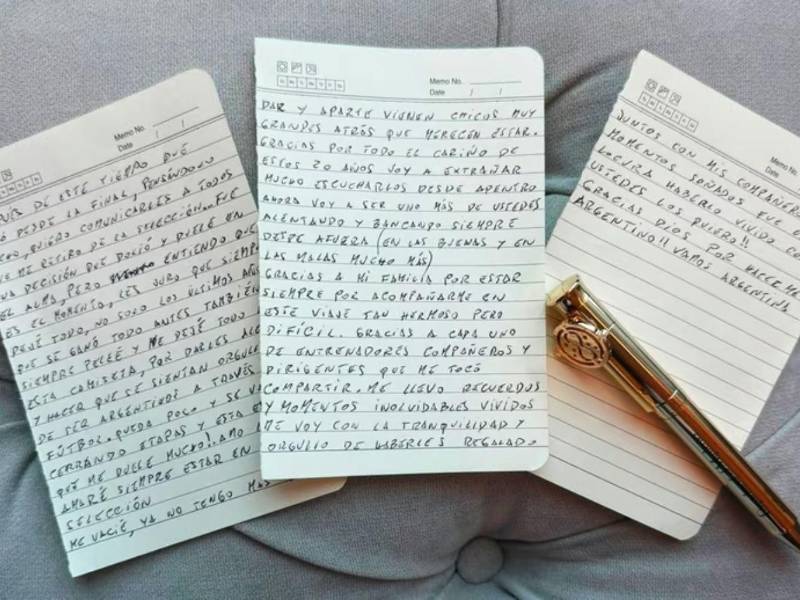 Memo No.
Date / /
PUES DE ESTE TIEMPO QUE
DESDE LA FINAL, PENSÁNDOLO
CHO, QUIERO COMUNICARLES A TODOS
ME RETIRO DE LA SELECCIÓN.. FUE
UNA DECISIÓN QUE DOLIÓ Y DUELE EN
EL ALMA, PERO ENTIENDO QUE
ES EL MOMENTO, LES JURO QUE SIEMPRE
DEJÉ TODO, NO SOLO LOS ÚLTIMOS AÑOS
QUE SE GANÓ TODO ANTES TAMBIÉN
SIEMPRE PELEÉ Y ME DEJÉ TODO
ESTA CAMISETA, POR DARLES ALE
Y HACER QUE SE SIENTAN ORGULL
DE SER ARGENTINOS A TRAVÉS
FÚTBOL. QUEDA POCO Y SE VA
CERRANDO ETAPAS Y ESTA ES
QUE ME DUELE MUCHO!. AMO
AMARÉ SIEMPRE ESTAR EN
SELECCIÓN
ME VACIÉ, YA NO TENGO MÁS
Memo No.
Date / /
DAR Y APARTE VIENEN CHICOS MUY
GRANDES ATRÁS QUE MERECEN ESTAR.
GRACIAS POR TODO EL CARIÑO DE
ESTOS 20 AÑOS VOY A EXTRAÑAR
MUCHO ESCUCHARLOS DESDE ADENTRO
AHORA VOY A SER UNO MÁS DE USTEDES
ALENTANDO Y BANCANDO SIEMPRE
DESDE AFUERA (EN LAS BUENAS Y EN
LAS MALAS MUCHO MÁS)
GRACIAS A MI FAMILIA POR ESTAR
SIEMPRE POR ACOMPAÑARME EN
ESTE VIAJE TAN HERMOSO PERO
DIFÍCIL. GRACIAS A CADA UNO
DE ENTRENADORES COMPAÑEROS Y
DIRIGENTES QUE ME TOCÓ
COMPARTIR. ME LLEVO RECUERDOS
Y MOMENTOS INOLVIDABLES VIVIDOS
ME VOY CON LA TRANQUILIDAD Y
ORGULLO DE HABERLES REGALADO
Memo No.
Date
JUNTOS CON MIS COMPAÑEROS
MOMENTOS SOÑADOS FUE
LOCURA HABERLO VIVIDO CO
USTEDES LOS QUIERO!!
GRACIAS DIOS POR HACERME
ARGENTINO!! VAMOS ARGENTINA